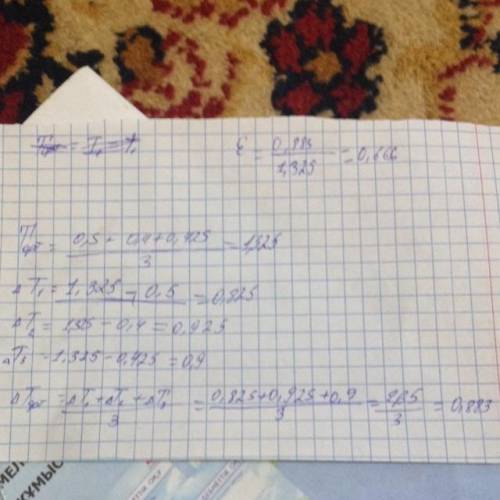 ε = 0,883 / 1,325 = 0,666
Tср = 0,5 + 0,4 + 0,425 / 3 = 1,325
ΔT₁ = 1,325 - 0,5 = 0,825
ΔT₂ = 1,325 - 0,4 = 0,925
ΔT₃ - 1,325 - 0,425 = 0,9
ΔTср = ΔT₁ + ΔT₂ + ΔT₃ / 3 = 0,825 + 0,925 + 0,9 / 3 = 2,65 / 3 = 0,883